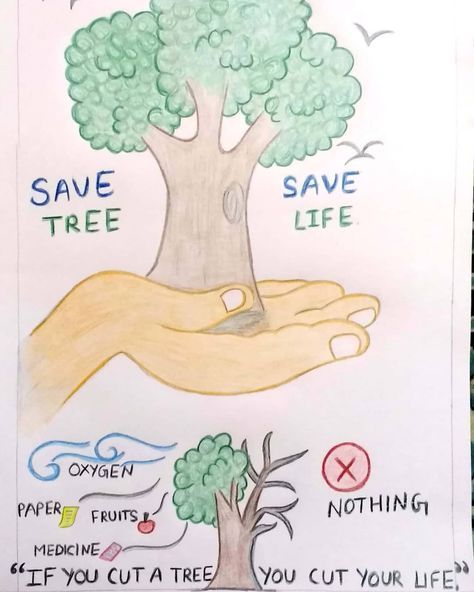 SAVE
TREE
SAVE
LIFE.
OXYGEN
PAPER
FRUITS
MEDICINE
X
NOTHING
"IF YOU CUT A TREE YOU CUT YOUR LIFE."